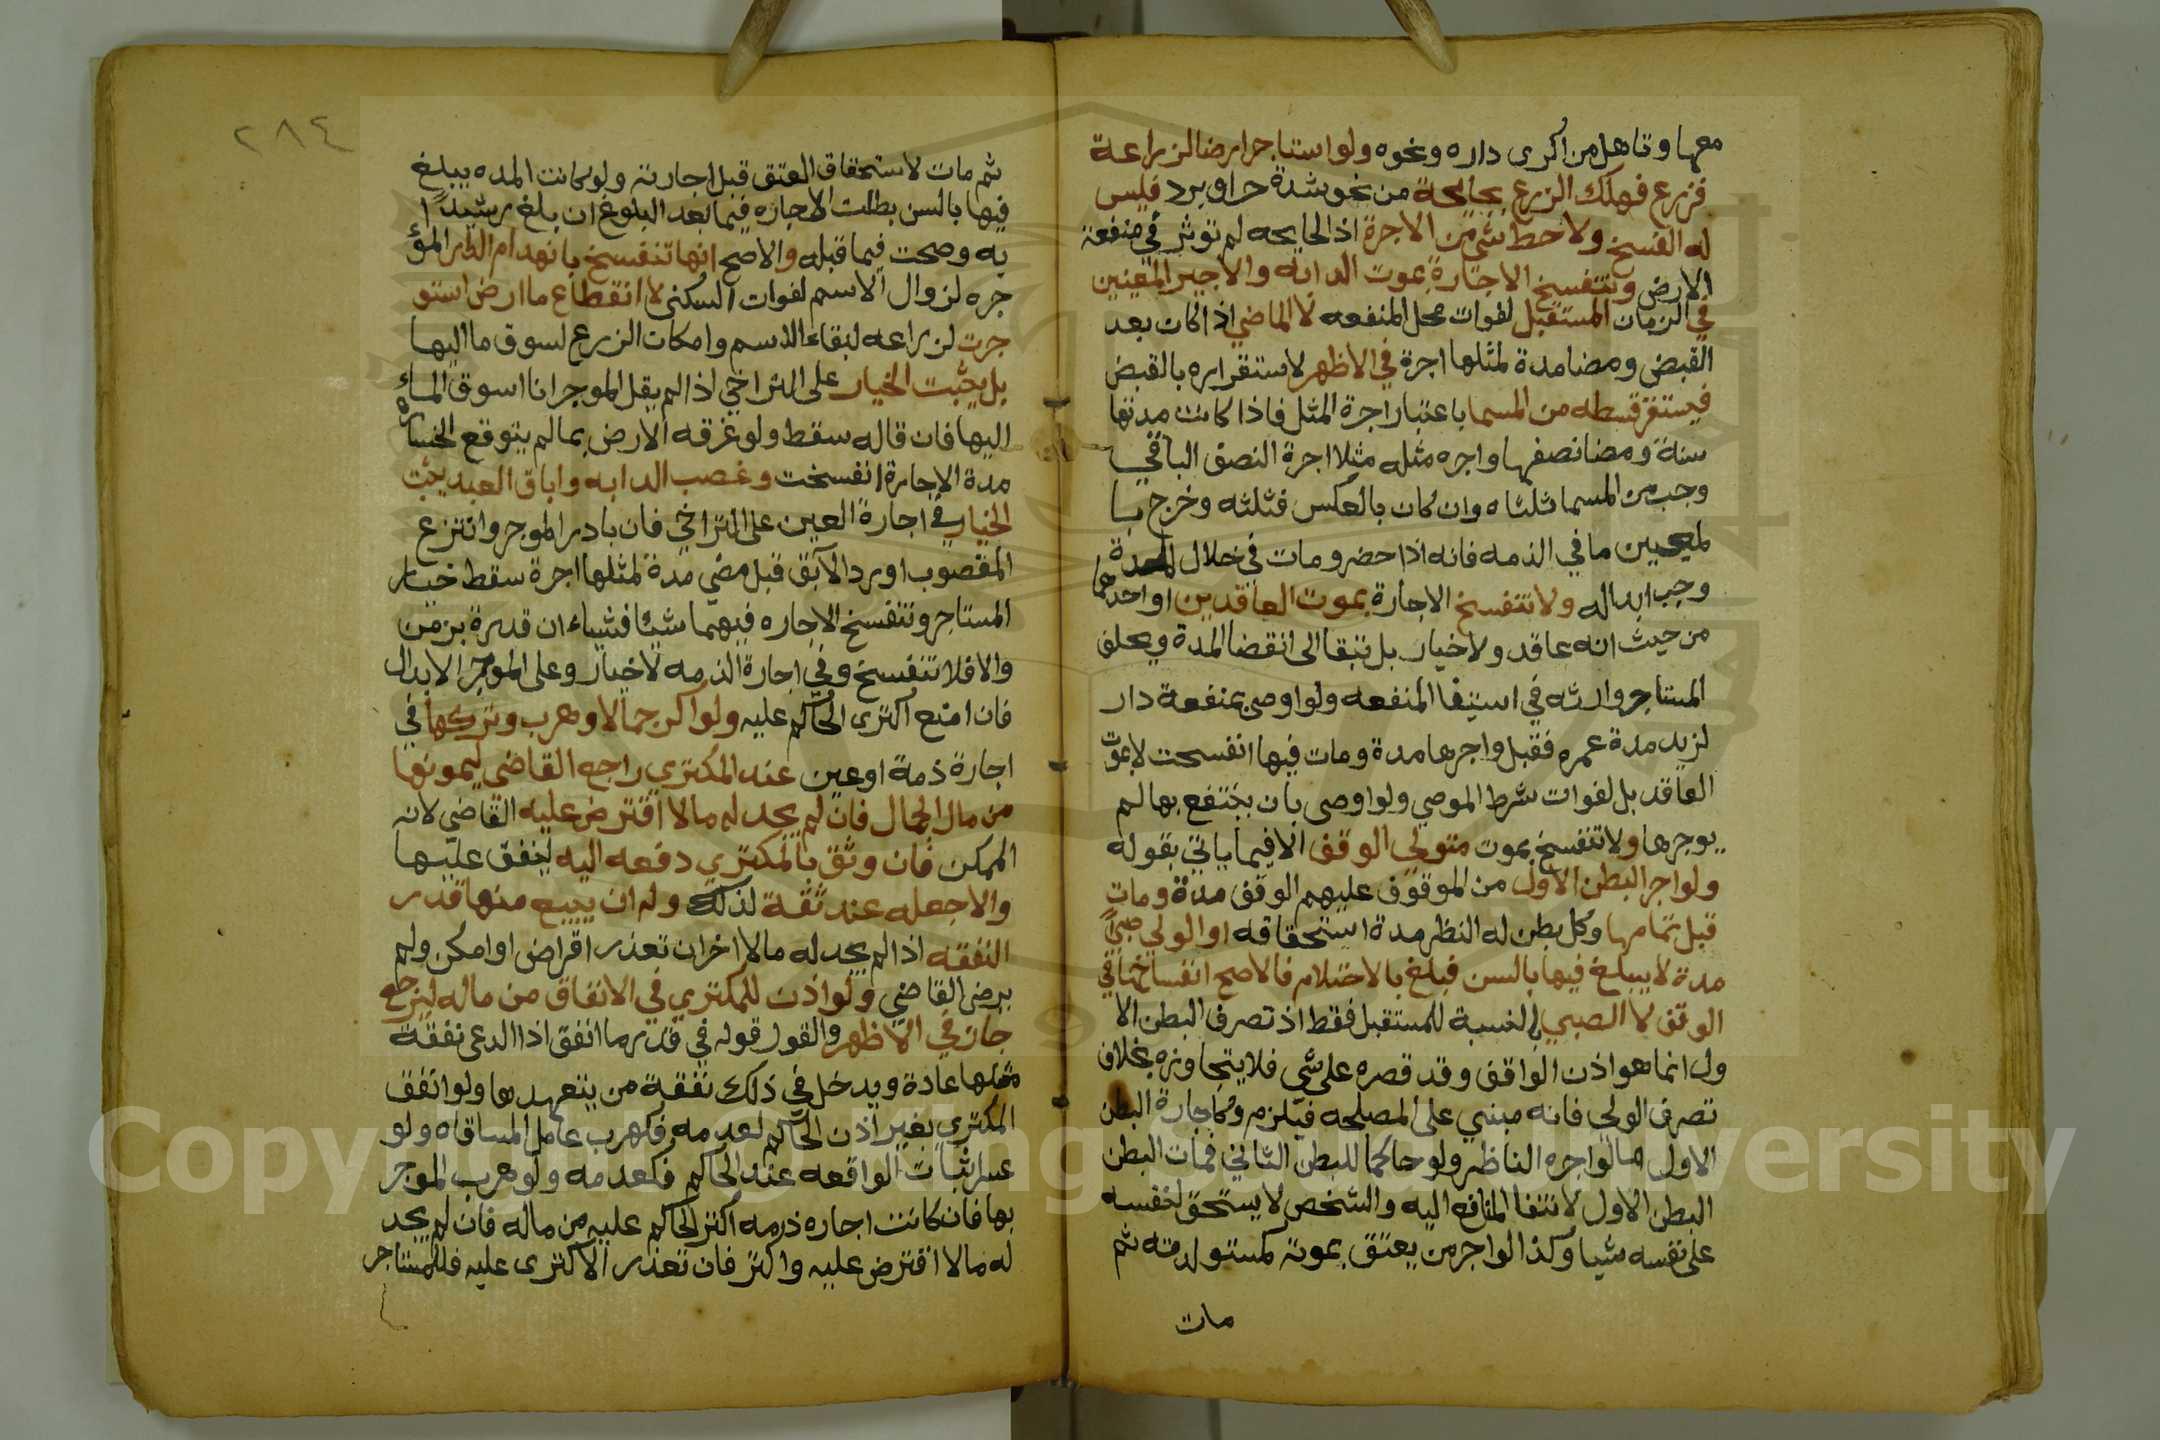 معها وتاهل من اكرى داره ونحوه ولو استاجر ارضا لزراعة
فزرع فهلك الزرع بجايحة من نحو شدة حر او برد فليس
له الفسخ ولا حط شي من الاجرة اذ الجايحه لم توثر في منفعة
الارض وتنفسخ الاجارة بموت الدابه والاجير المعينين
في الزمان المستقبل لفوات محل المنفعه لا الماضي اذا كان بعد
القبض ومضا مدة لمثلها اجرة في الاظهر لاستقراره بالقبض
فيستقر قسطه من المسما باعتبار اجرة المثل فاذا كانت مدتها
سنة ومضا نصفها واجره مثله مثلا اجرة النصف الباقي
وجب من المسما ثلثاه وان كان بالعكس فثلثه وخرج با
لمعين ما في الذمه فانه اذا حضر ومات في خلال المدة
وجب ابداله ولا تنفسخ الاجارة بموت العاقدين او احدهما
من حيث انه عاقد ولا خيار بل تبقا الى انقضا المدة ويخلف
المستاجر وارثه في استيفا المنفعه ولو اوصى بمنفعة دار
لزيد مدة عمره فقبل واجرها مدة ومات فيها انفسخت لا بموت
العاقد بل لفوات شرط الموصي ولو اوصى بان ينتفع بها لم
يوجرها ولا تنفسخ بموت متولي الوقف الا فيما ياتي بقوله
ولو اجر البطن الاول من الموقوف عليهم الوقف مدة ومات
قبل تمامها وكل بطن له النظر مدة استحقاقه او الولي صبيا
مدة لا يبلغ فيها بالسن فبلغ بالاحتلام فالاصح انفساخها في
الوقف لا الصبي بالنسبة للمستقبل فقط اذ تصرف البطن الا
ول انما هو اذن الواقف وقد قصره على شي فلا يتجاوزه بخلاف
تصرف الولي فانه مبني على المصلحه فيلزم وكاجارة البطن
الاول ما لو اجره الناظر ولو حاكما للبطن الثاني فمات البطن
البطن الاول لانتفا المنافع اليه والشخص لا يستحق لنفسه
على نفسه شيا وكذا لو اجر من يعتق بموته كمستولدته ثم
مات
٢٨٤
ثم مات لاستحقاق العتق قبل اجارته ولو كانت المده يبلغ
فيها بالسن بطلت الاجاره فيما بعد البلوغ ان بلغ رشيدا
به وصحت فيما قبله والاصح انها تنفسخ بانهدام الدار المؤ
جره لزوال الاسم لفوات السكنى لا انقطاع ما ارض استو
جرت لزراعه لبقاء الاسم وامكان الزرع لسوق ما اليها
بل يثبت الخيار على التراخي اذا لم يقل الموجر انا اسوق الماء
اليها فان قاله سقط ولو غرقه الارض بما لم يتوقع انحساره
مدة الاجارة انفسخت وغصب الدابه واباق العبد يثبت
الخيار في اجارة العين على التراخي فان بادر الموجر وانتزع
المغصوب او رد الآبق قبل مضي مدة لمثلها اجرة سقط خيار
المستاجر وتنفسخ الاجاره فيهما شيئا فشياء ان قدرة بزمن
والا فلا تنفسخ وفي اجارة الذمه لا خيار وعلى الموجر الابدال
فان امتنع اكترى الحاكم عليه ولو اكرى جمالا وهرب وتركها في
اجارة ذمة او عين عند المكتري راجع القاضي ليمونها
من مال الجمال فان لم يجد له مالا اقترض عليه القاضي لانه
الممكن فان وثق بالمكتري دفعه اليه لينفق عليها
والا جعله عند ثقة لذلك وله ان يبيع منها قدر
النفقه اذا لم يجد له مالا اخر ان تعذر اقراض او امكن ولم
يرضى القاضي ولو اذن للمكتري في الانفاق من ماله ليرجع
جاز في الاظهر والقول قوله في قدر ما انفق اذا ادعى نفقة
مثلها عادة ويدخل في ذلك نفقة من يتعهدها ولو انفق
المكتري بغير اذن الحاكم لعدمه فكهرب عامل المساقاه ولو
عسر اثبات الواقعه عند الحاكم فكعدمه ولو هرب الموجر
بها فان كانت اجاره ذمه اكترا الحاكم عليه من ماله فان لم يجد
له مالا اقترض عليه واكتر فان تعذر الاكترى عليه فللمستاجر
Copyright © King Saud University